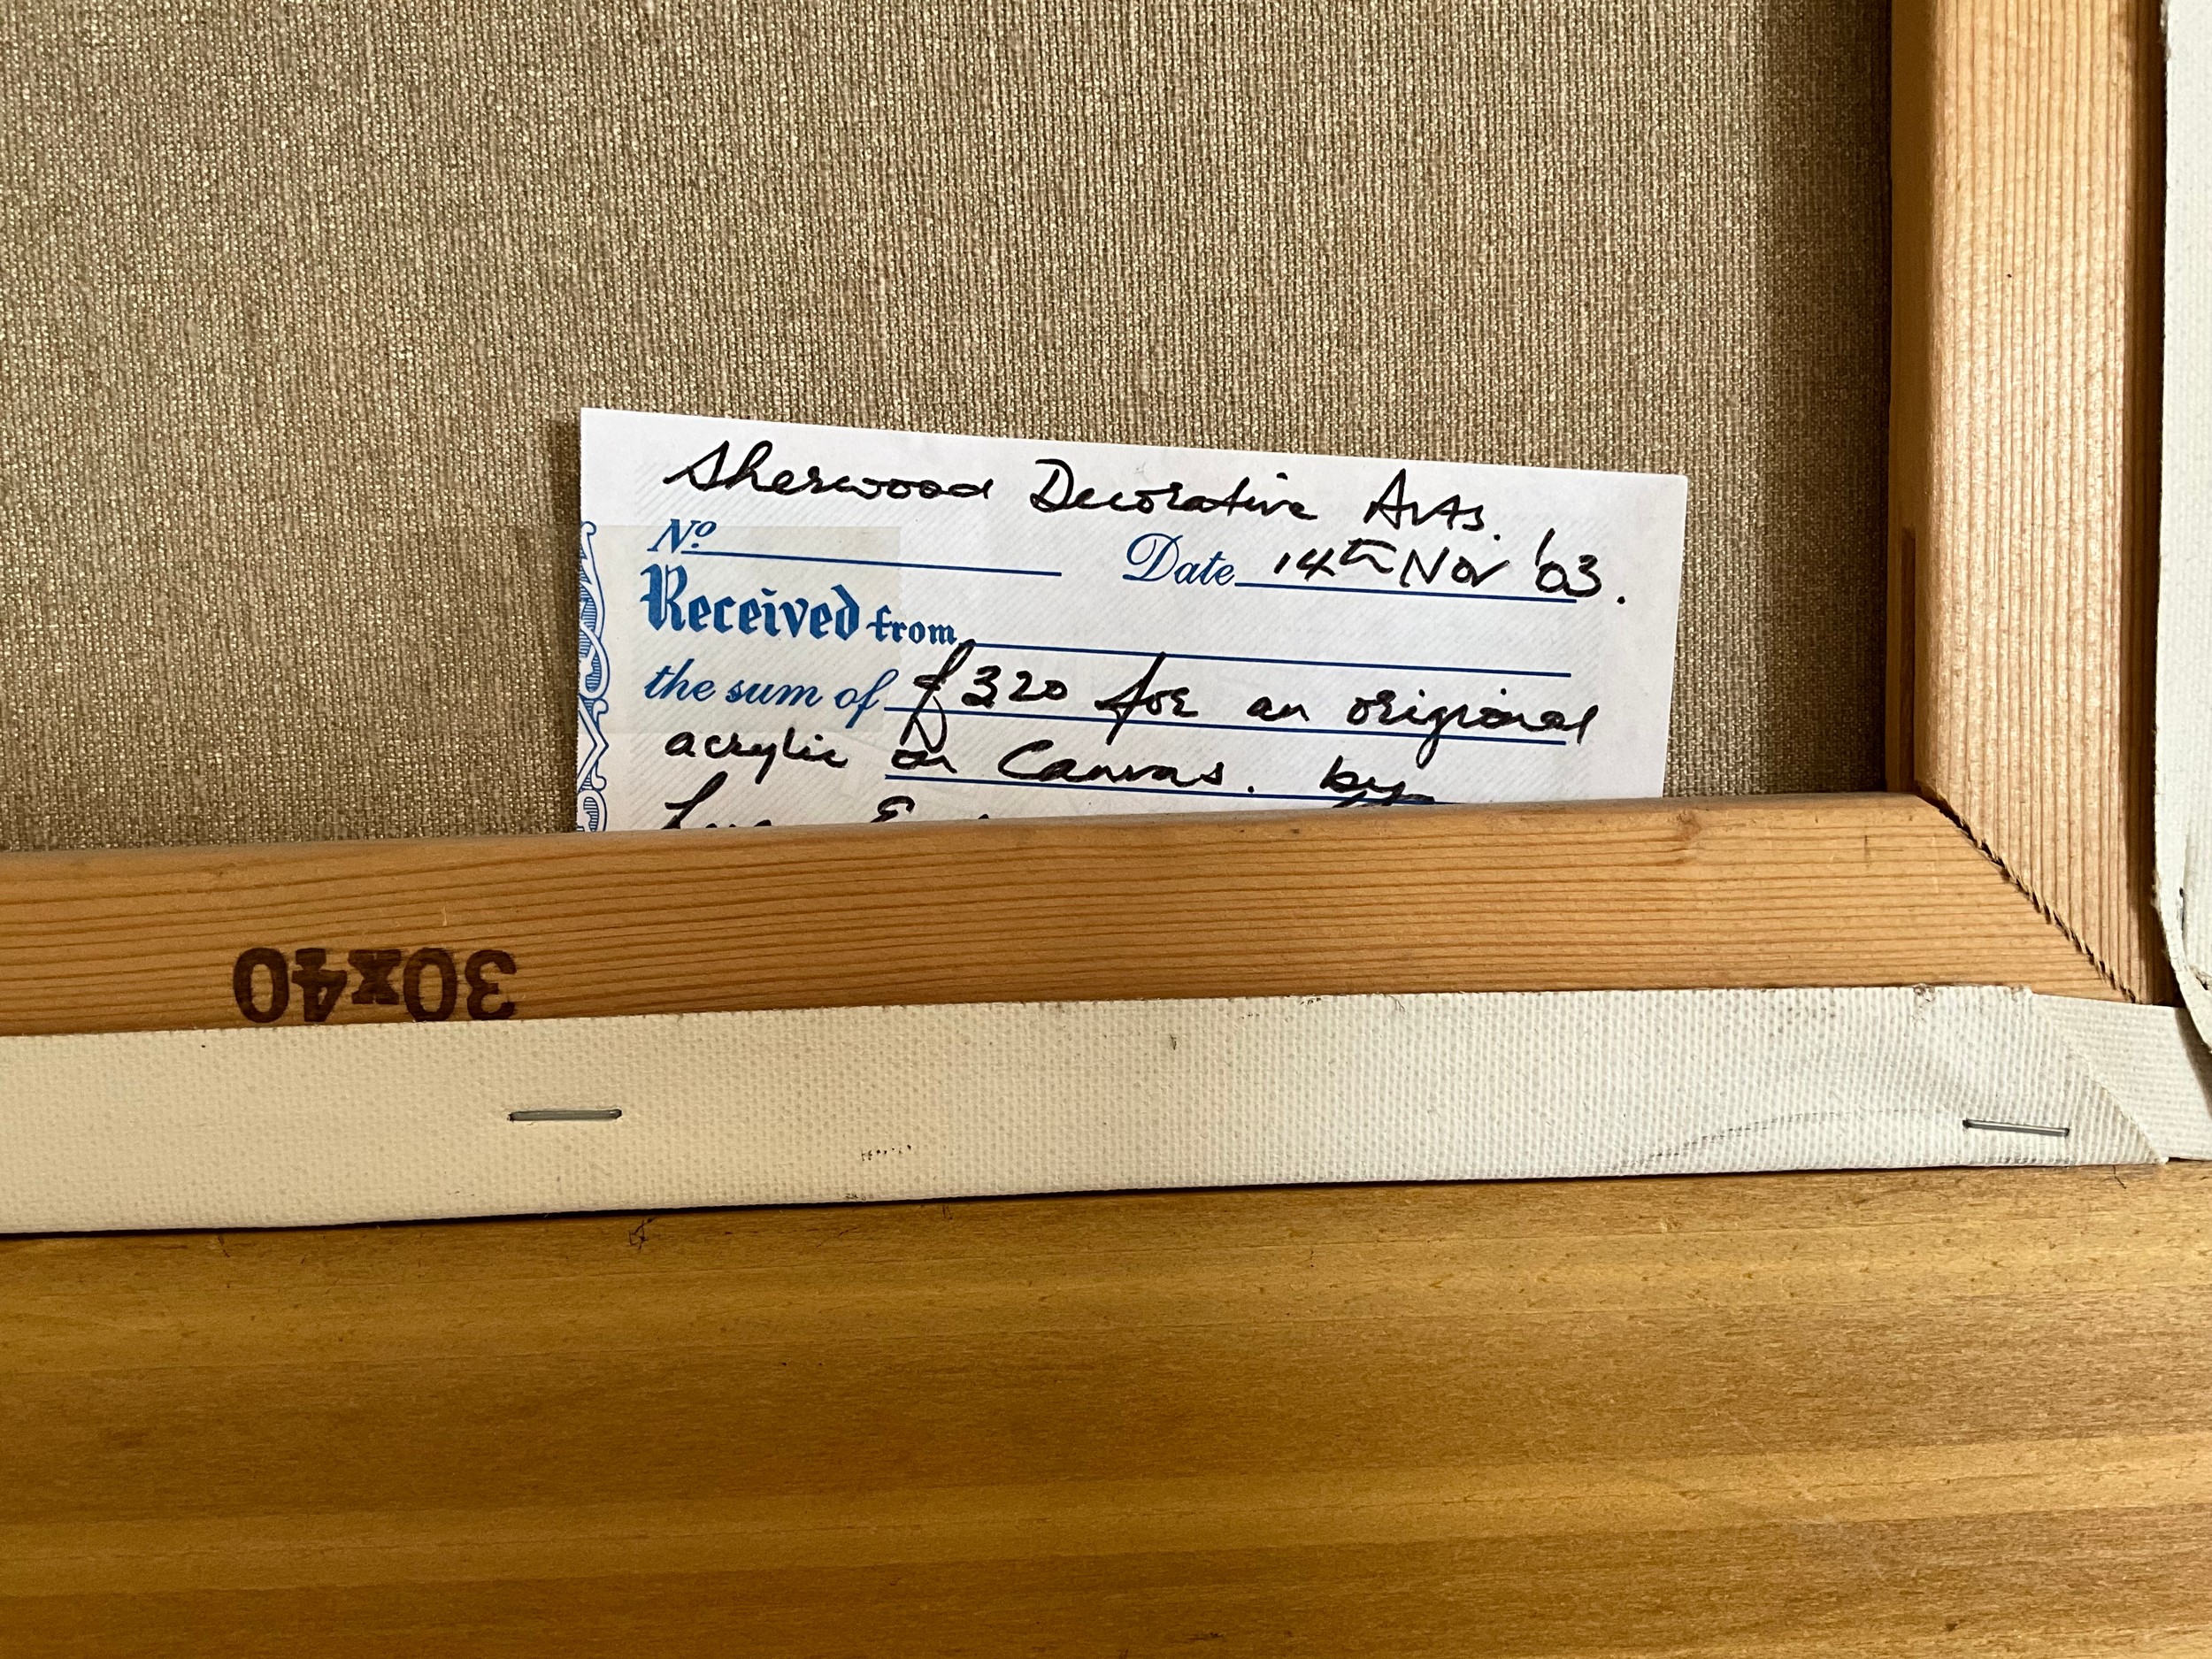 Sherwood Decorative Arts.
No. Date 14th Nov '03.
Received from
the sum of £320 for an origional
acrylic on Canvas. by
30x40